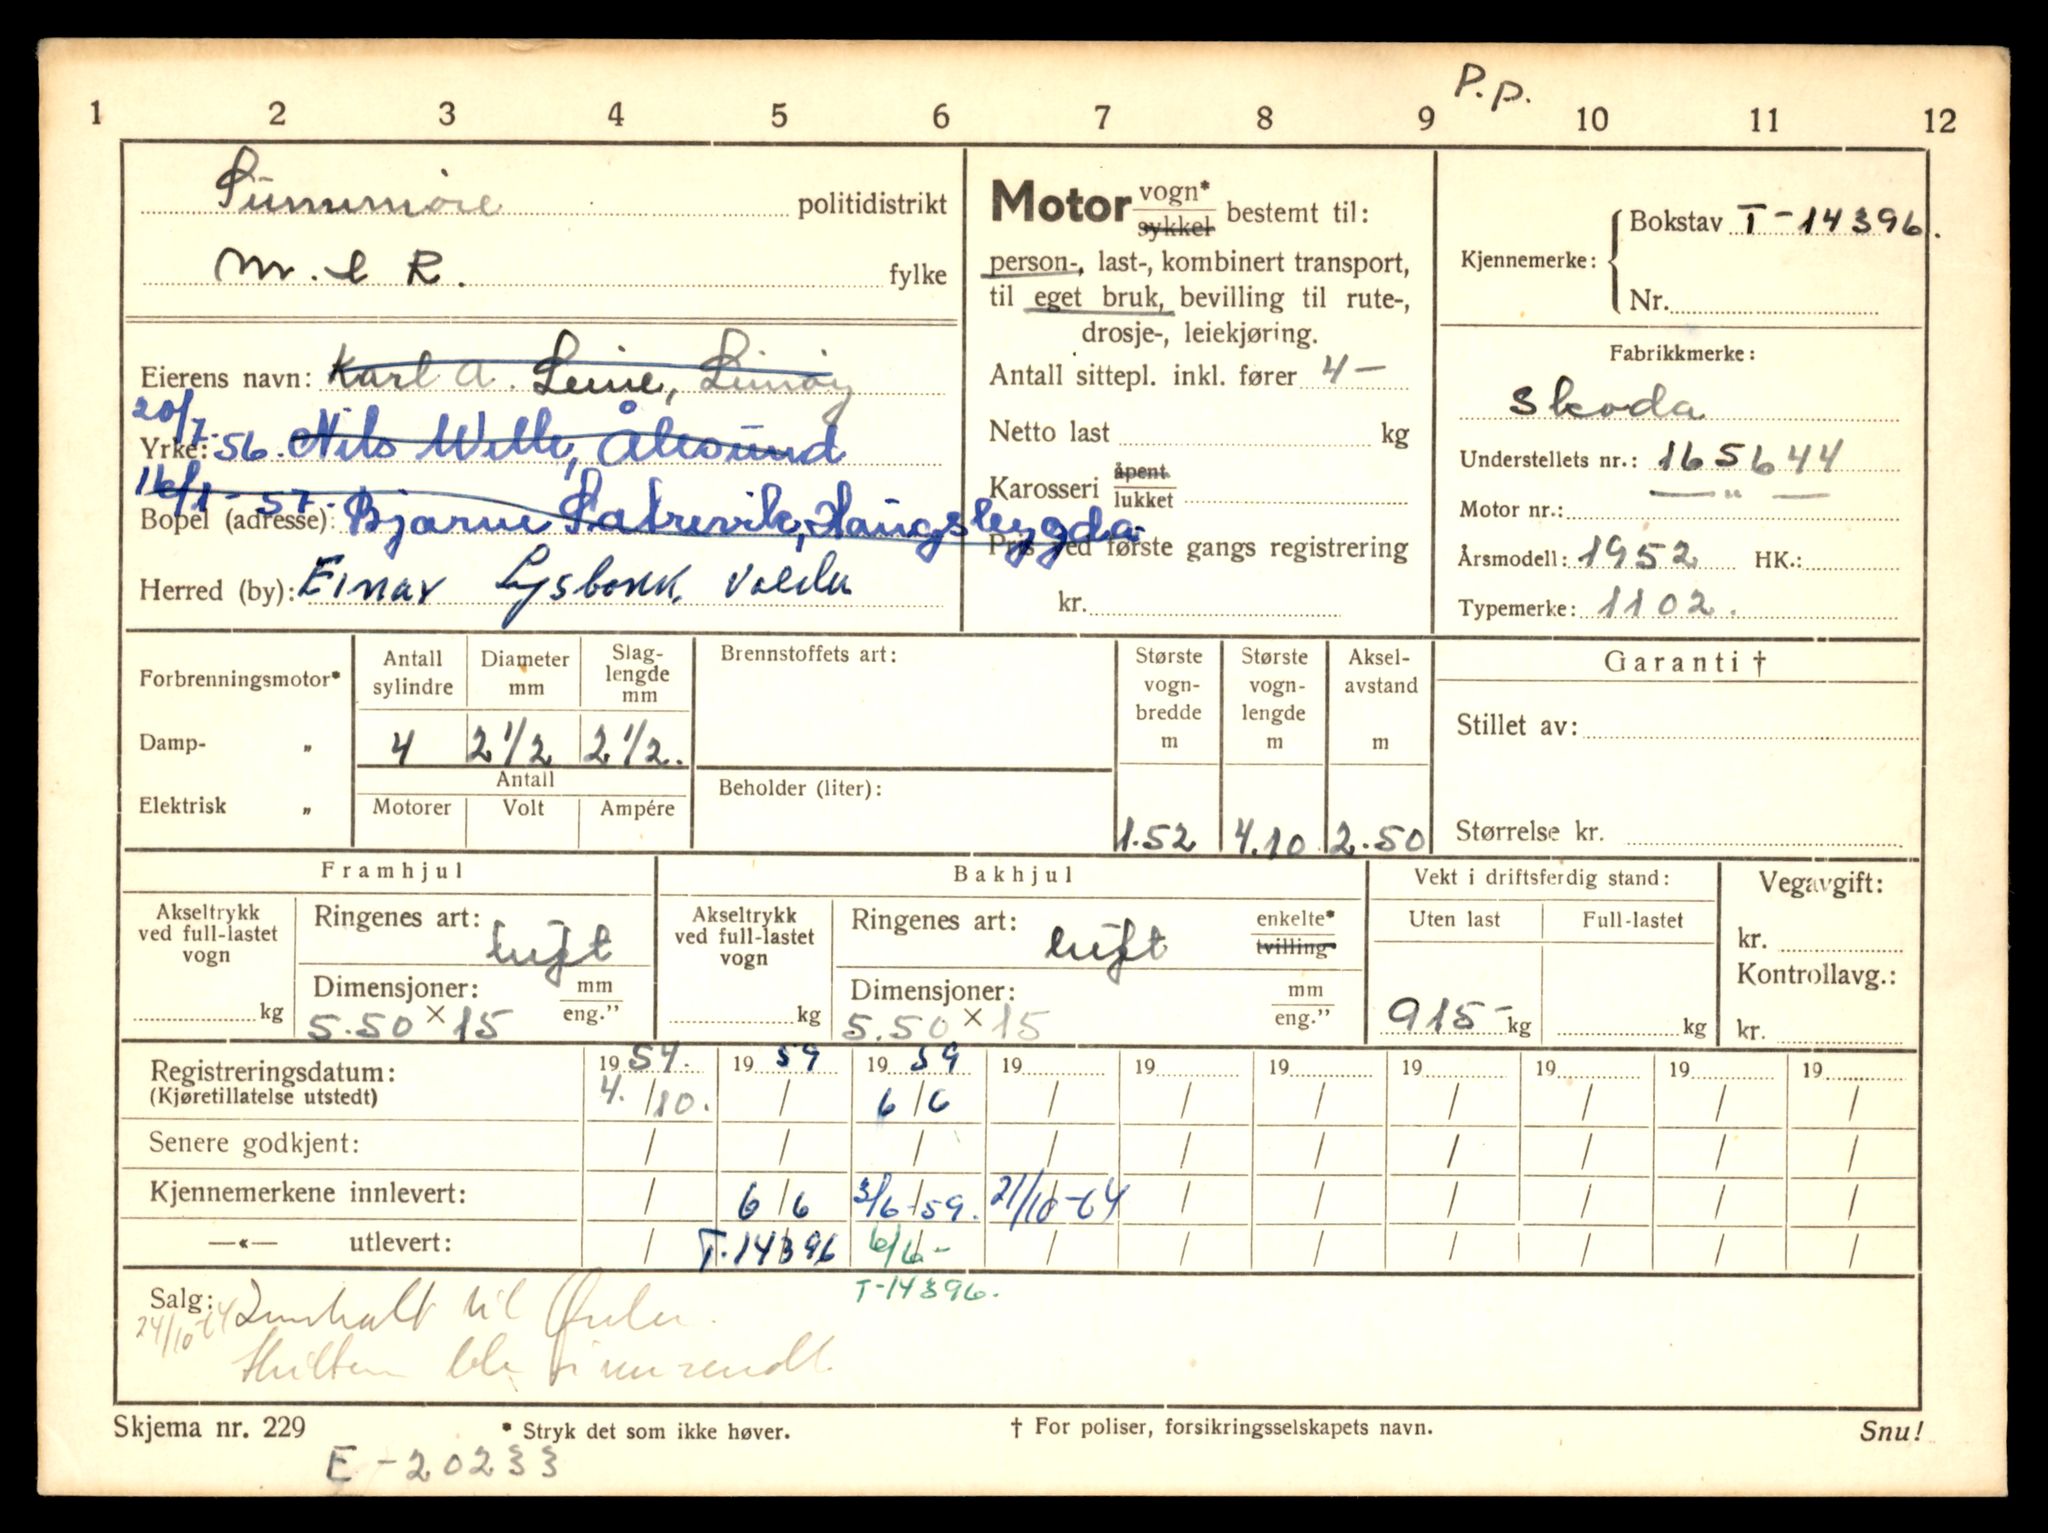 P.p.
1 2 3 4 5 6 7 8 9 10 11 12
Sunnmøre politidistrikt
M. & R. fylke
Eierens navn: Karl A. Leine,
Yrke: 20/7-56. Nils Welle, Ålesund
Bopel (adresse): 16/1-57. Bjarne Sætrevik, Haugsbygda
Herred (by): Einar Lysbakk, Volda
Motor vogn* / sykkel bestemt til:
person-, last-, kombinert transport,
til eget bruk, bevilling til rute-,
drosje-, leiekjøring.
Antall sittepl. inkl. fører 4 —
Netto last kg
Karosseri åpent / lukket
Pris ved første gangs registrering
kr.
Kjennemerke: Bokstav T-14396.
Nr.
Fabrikkmerke:
Skoda
Understellets nr.: 165644
Motor nr.: — " —
Årsmodell: 1952 HK.:
Typemerke: 1102.
Forbrenningsmotor* Antall sylindre Diameter mm Slag-lengde mm
Damp- „ 4 2 1/2 2 1/2.
Antall
Elektrisk „ Motorer Volt Ampére
Brennstoffets art:
Beholder (liter):
Største vogn-bredde m Største vogn-lengde m Aksel-avstand m
1.52 4.10 2.50
Garanti †
Stillet av:
Størrelse kr.
Framhjul
Akseltrykk ved full-lastet vogn kg
Ringenes art: luft
Dimensjoner: mm / eng."
5.50 × 15
Bakhjul
Akseltrykk ved full-lastet vogn kg
Ringenes art: luft enkelte* / tvilling
Dimensjoner: mm / eng."
5.50 × 15
Vekt i driftsferdig stand:
Uten last Full-lastet
915- kg kg
Vegavgift:
kr.
Kontrollavg.:
kr.
Registreringsdatum: 1954. 1959 1959 19 19 19 19 19 19 19
(Kjøretillatelse utstedt) 4./10. / 6/6 / / / / / / /
Senere godkjent: / / / / / / / / / /
Kjennemerkene innlevert: / 6/6 3/6-59. 21/10-64 / / / / / /
—«— utlevert: / T-14396 6/6- / / / / / / /
T-14396.
Salg:
24/10-64 til
ble
Skjema nr. 229 * Stryk det som ikke høver. † For poliser, forsikringsselskapets navn. Snu!
E-20233